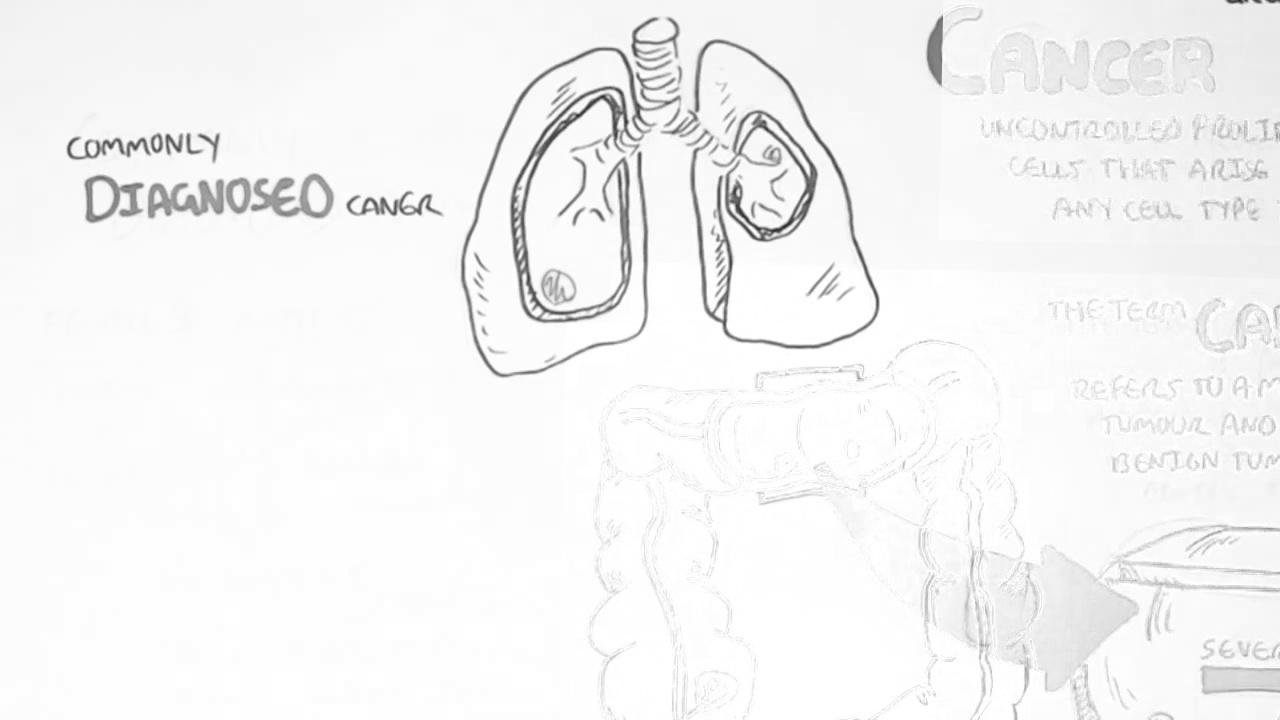 COMMONLY
DIAGNOSED CANCER
CANCER
UNCONTROLLED PROLI
CELLS THAT ARISE
ANY CELL TYPE
THE TERM CA
REFERS TO A M
TUMOUR AND
BENIGN TUM
SEVER